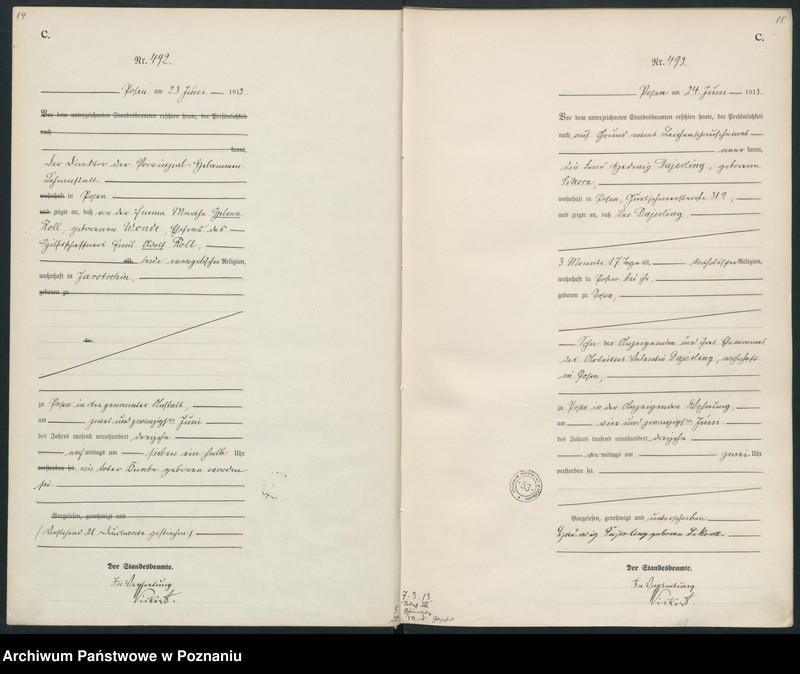 14.
C.
Nr. 492.
Posen am 23 Juni 1913
Vor dem unterzeichneten Standesbeamten erschien heute, der Persönlichkeit
nach
kannt,
Der Direktor der Provinzial-Hebammen
Lehranstalt
wohnhaft in Posen
und zeigte an, daß von der Emma Martha Helena
Roll, geborenen Wende, Ehefrau des
Hilfsschaffners Emil Adolf Roll,
alt, beide evangelischer Religion,
wohnhaft in Jarotschin,
geboren zu
die
zu Posen in der genannten Anstalt,
am zwei und zwanzigsten Juni
des Jahres tausend neunhundert dreizehn
nachmittags um sieben ein halb Uhr
verstorben sei. ein toter Knabe geboren worden
sei.
Vorgelesen, genehmigt und
(Vorstehend 21 Druckworte gestrichen)
Der Standesbeamte.
In Vertretung
15.
C.
Nr. 493.
Posen am 24. Juni 1913.
Vor dem unterzeichneten Standesbeamten erschien heute, der Persönlichkeit
nach auf Grund eines Leichenschauscheines
anerkannt,
die Frau Hedwig Dajerling, geborene
Sikora,
wohnhaft in Posen,
und zeigte an, daß Leo Dajerling,
3 Monate 17 Tage alt, katholischer Religion,
wohnhaft in Posen bei ihr,
geboren zu Posen,
Sohn der Anzeigenden und ihres Ehemannes
des Arbeiters Valentin Dajerling, wohnhaft
in Posen,
zu Posen in der Anzeigenden Wohnung,
am vier und zwanzigsten Juni
des Jahres tausend neunhundert dreizehn
vormittags um zwei Uhr
verstorben sei.
Vorgelesen, genehmigt und unterschrieben
Hedwig Dajerling geborene Sikora.
Der Standesbeamte.
In Vertretung
53
7. 3. 13.
Archiwum Państwowe w Poznaniu